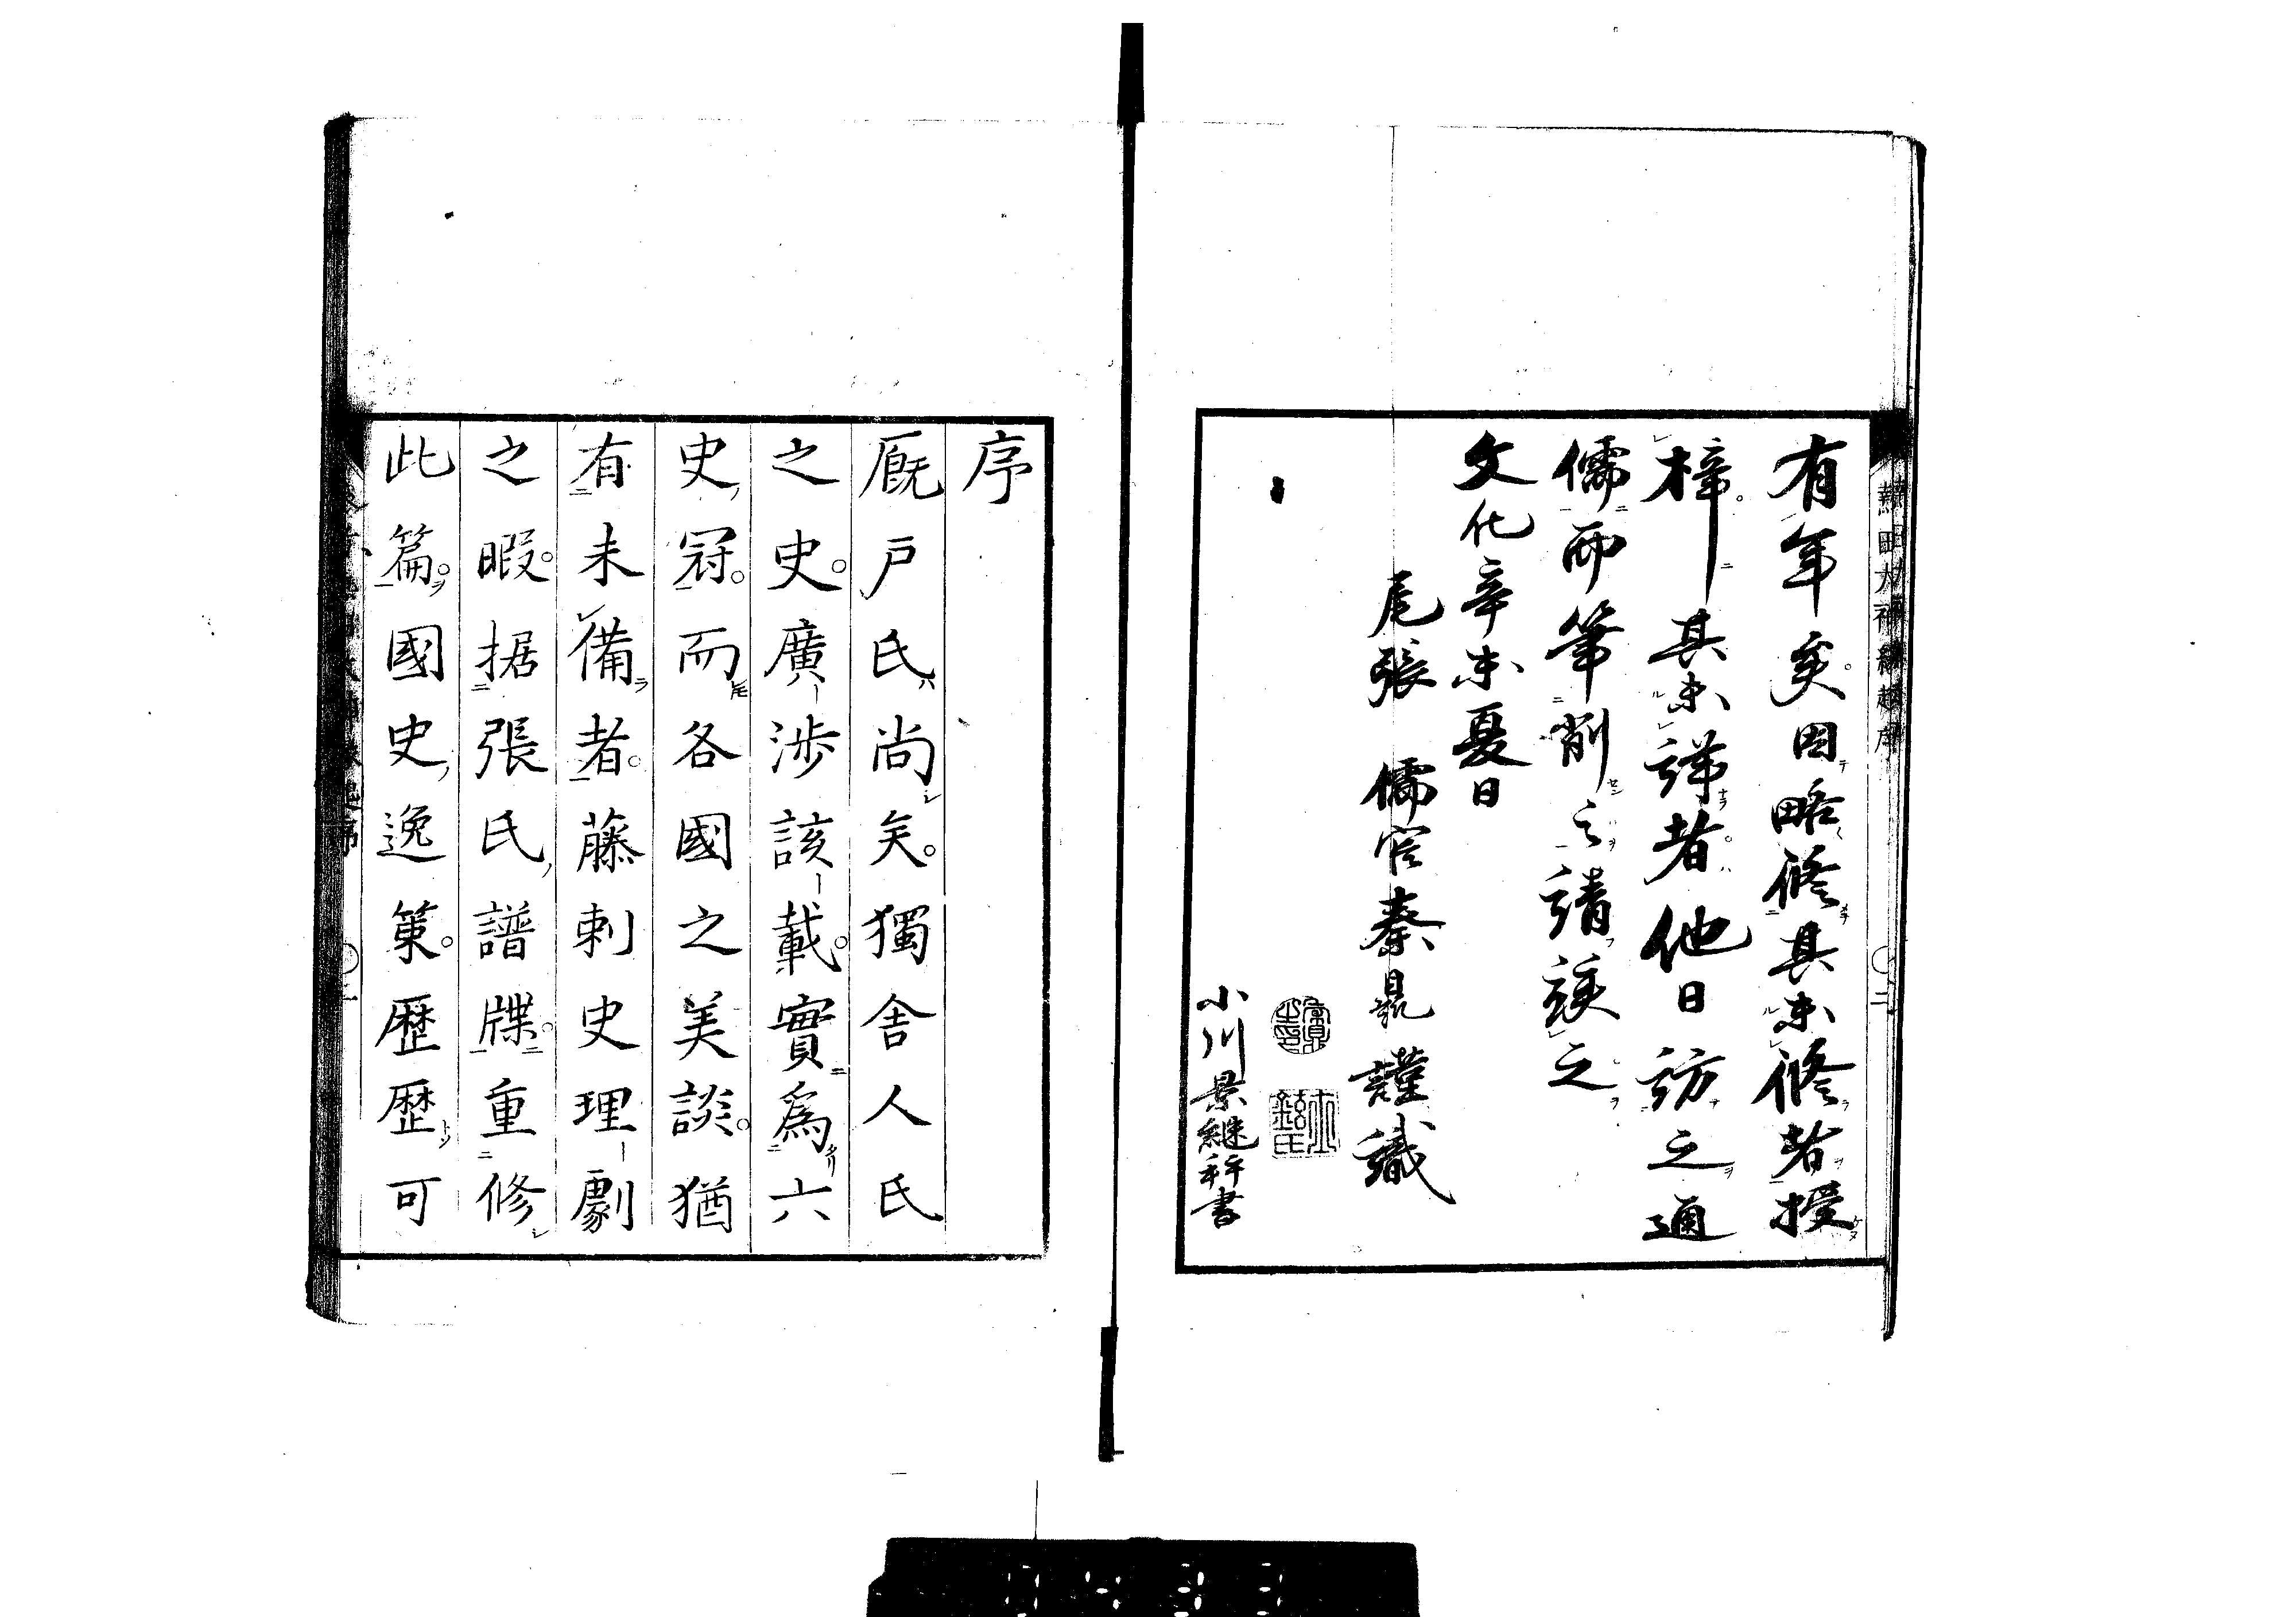 有年矣因略修其未修者授
梓其未詳者他日訪之通
儒而筆削之請諒之
文化辛未夏日
尾張 儒官秦鼎謹識
小川景継梓書
序
厩戸氏尚矣獨舎人氏
之史廣渉該載實爲六
史冠而各國之美談猶
有未備者藤刺史理劇
之暇据張氏譜牒重修
此篇國史逸策歴歴可